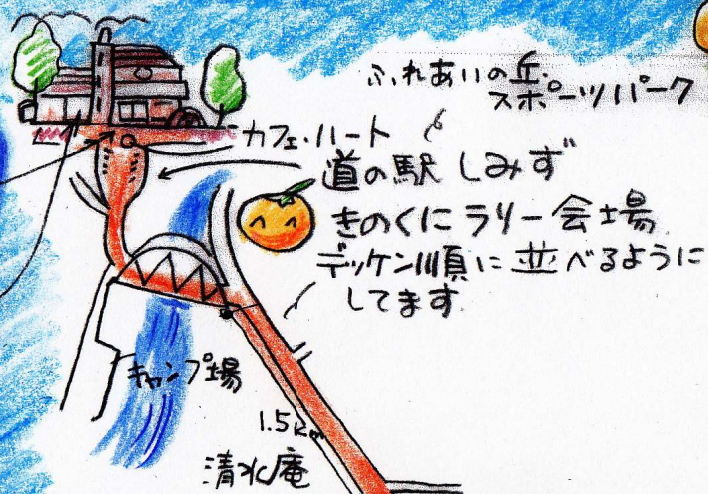 ふれあいの丘
スポーツパーク
カフェ・ハート
道の駅 しみず
きのくにラリー会場
デッケン順に並べるように
してます
キャンプ場
1.5km
清水庵